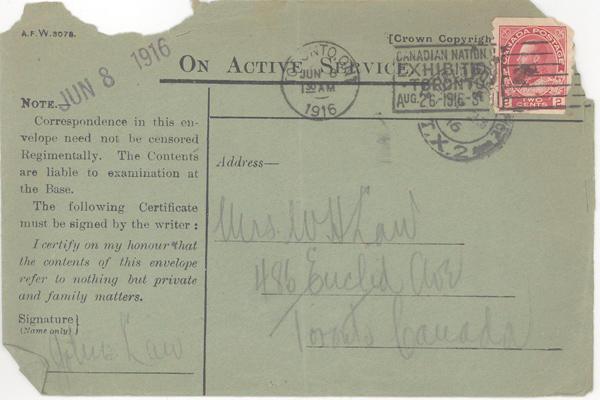 A.F.W.3078.
[Crown Copyrigh
JUN 8 1916
ON ACTIVE SERVICE
TORONTO, O
JUN 8
30 AM
1916
CANADIAN NATION
EXHIBITI
TORONTO
AUG. 26-1916-S
CANADA POSTAGE
2 2
TWO CENTS
X.2
16
NOTE.
Correspondence in this en-
velope need not be censored
Regimentally. The Contents
are liable to examination at
the Base.
The following Certificate
must be signed by the writer:
I certify on my honour that
the contents of this envelope
refer to nothing but private
and family matters.
Signature}
(Name only)
Law
Address—
Mrs. W H Law
486 Euclid Ave
Toronto Canada